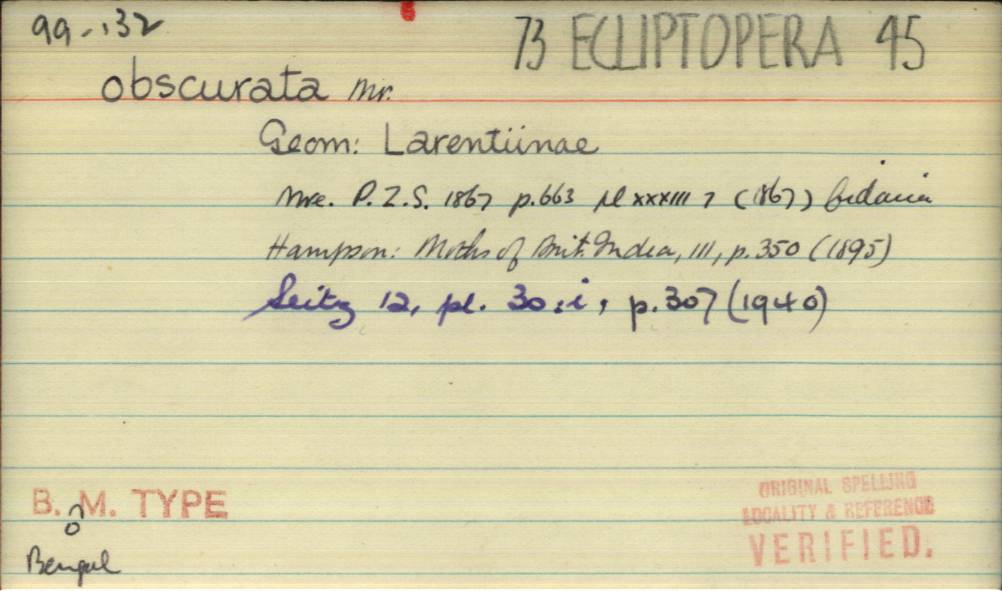 99-132
73 ECLIPTOPERA 45
obscurata Mr.
Geom: Larentiinae
Mre. P.Z.S. 1867 p.663 pl xxxiii 7 (1867) Cidaria
Hampson: Moths of Brit. India, III, p.350 (1895)
Seitz 12, pl. 30:i, p.307 (1940)
B.M. TYPE
Bengal
ORIGINAL SPELLING
LOCALITY & REFERENCE
VERIFIED.